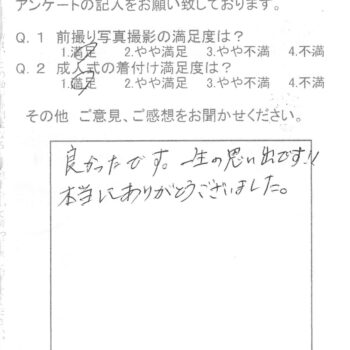 アンケートの記入をお願い致しております。
Q.1 前撮り写真撮影の満足度は?
1.満足 2.やや満足 3.やや不満 4.不満
Q.2 成人式の着付け満足度は?
1.満足 2.やや満足 3.やや不満 4.不満
その他 ご意見、ご感想をお聞かせください。
良かったです。一生の思い出です!!
本当にありがとうございました。